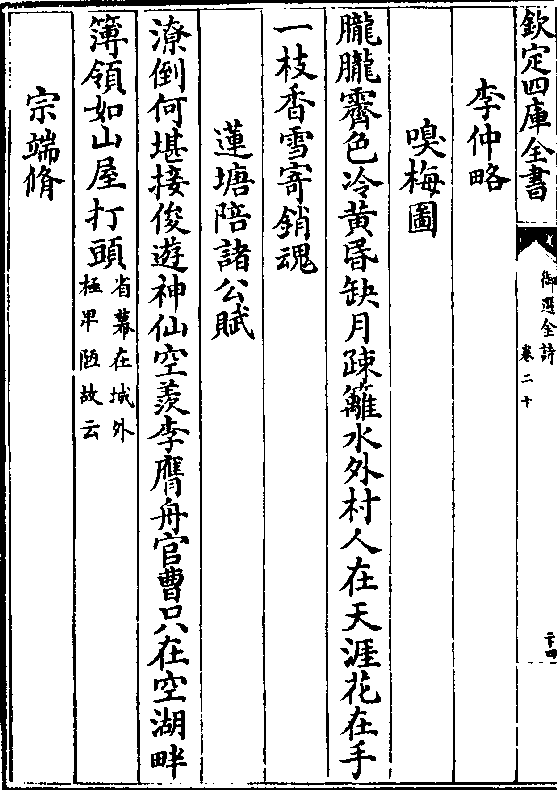 欽定四庫全書
御選金詩
卷二十
二十四
李仲略
嗅梅圖
朧朧霽色冷黃昏缺月疎籬水外村人在天涯花在手
一枝香雪寄銷魂
蓮塘陪諸公賦
潦倒何堪接俊遊神仙空羨李膺舟官曹只在空湖畔
簿領如山屋打頭
省幕在城外
極卑陋故云
宗端脩